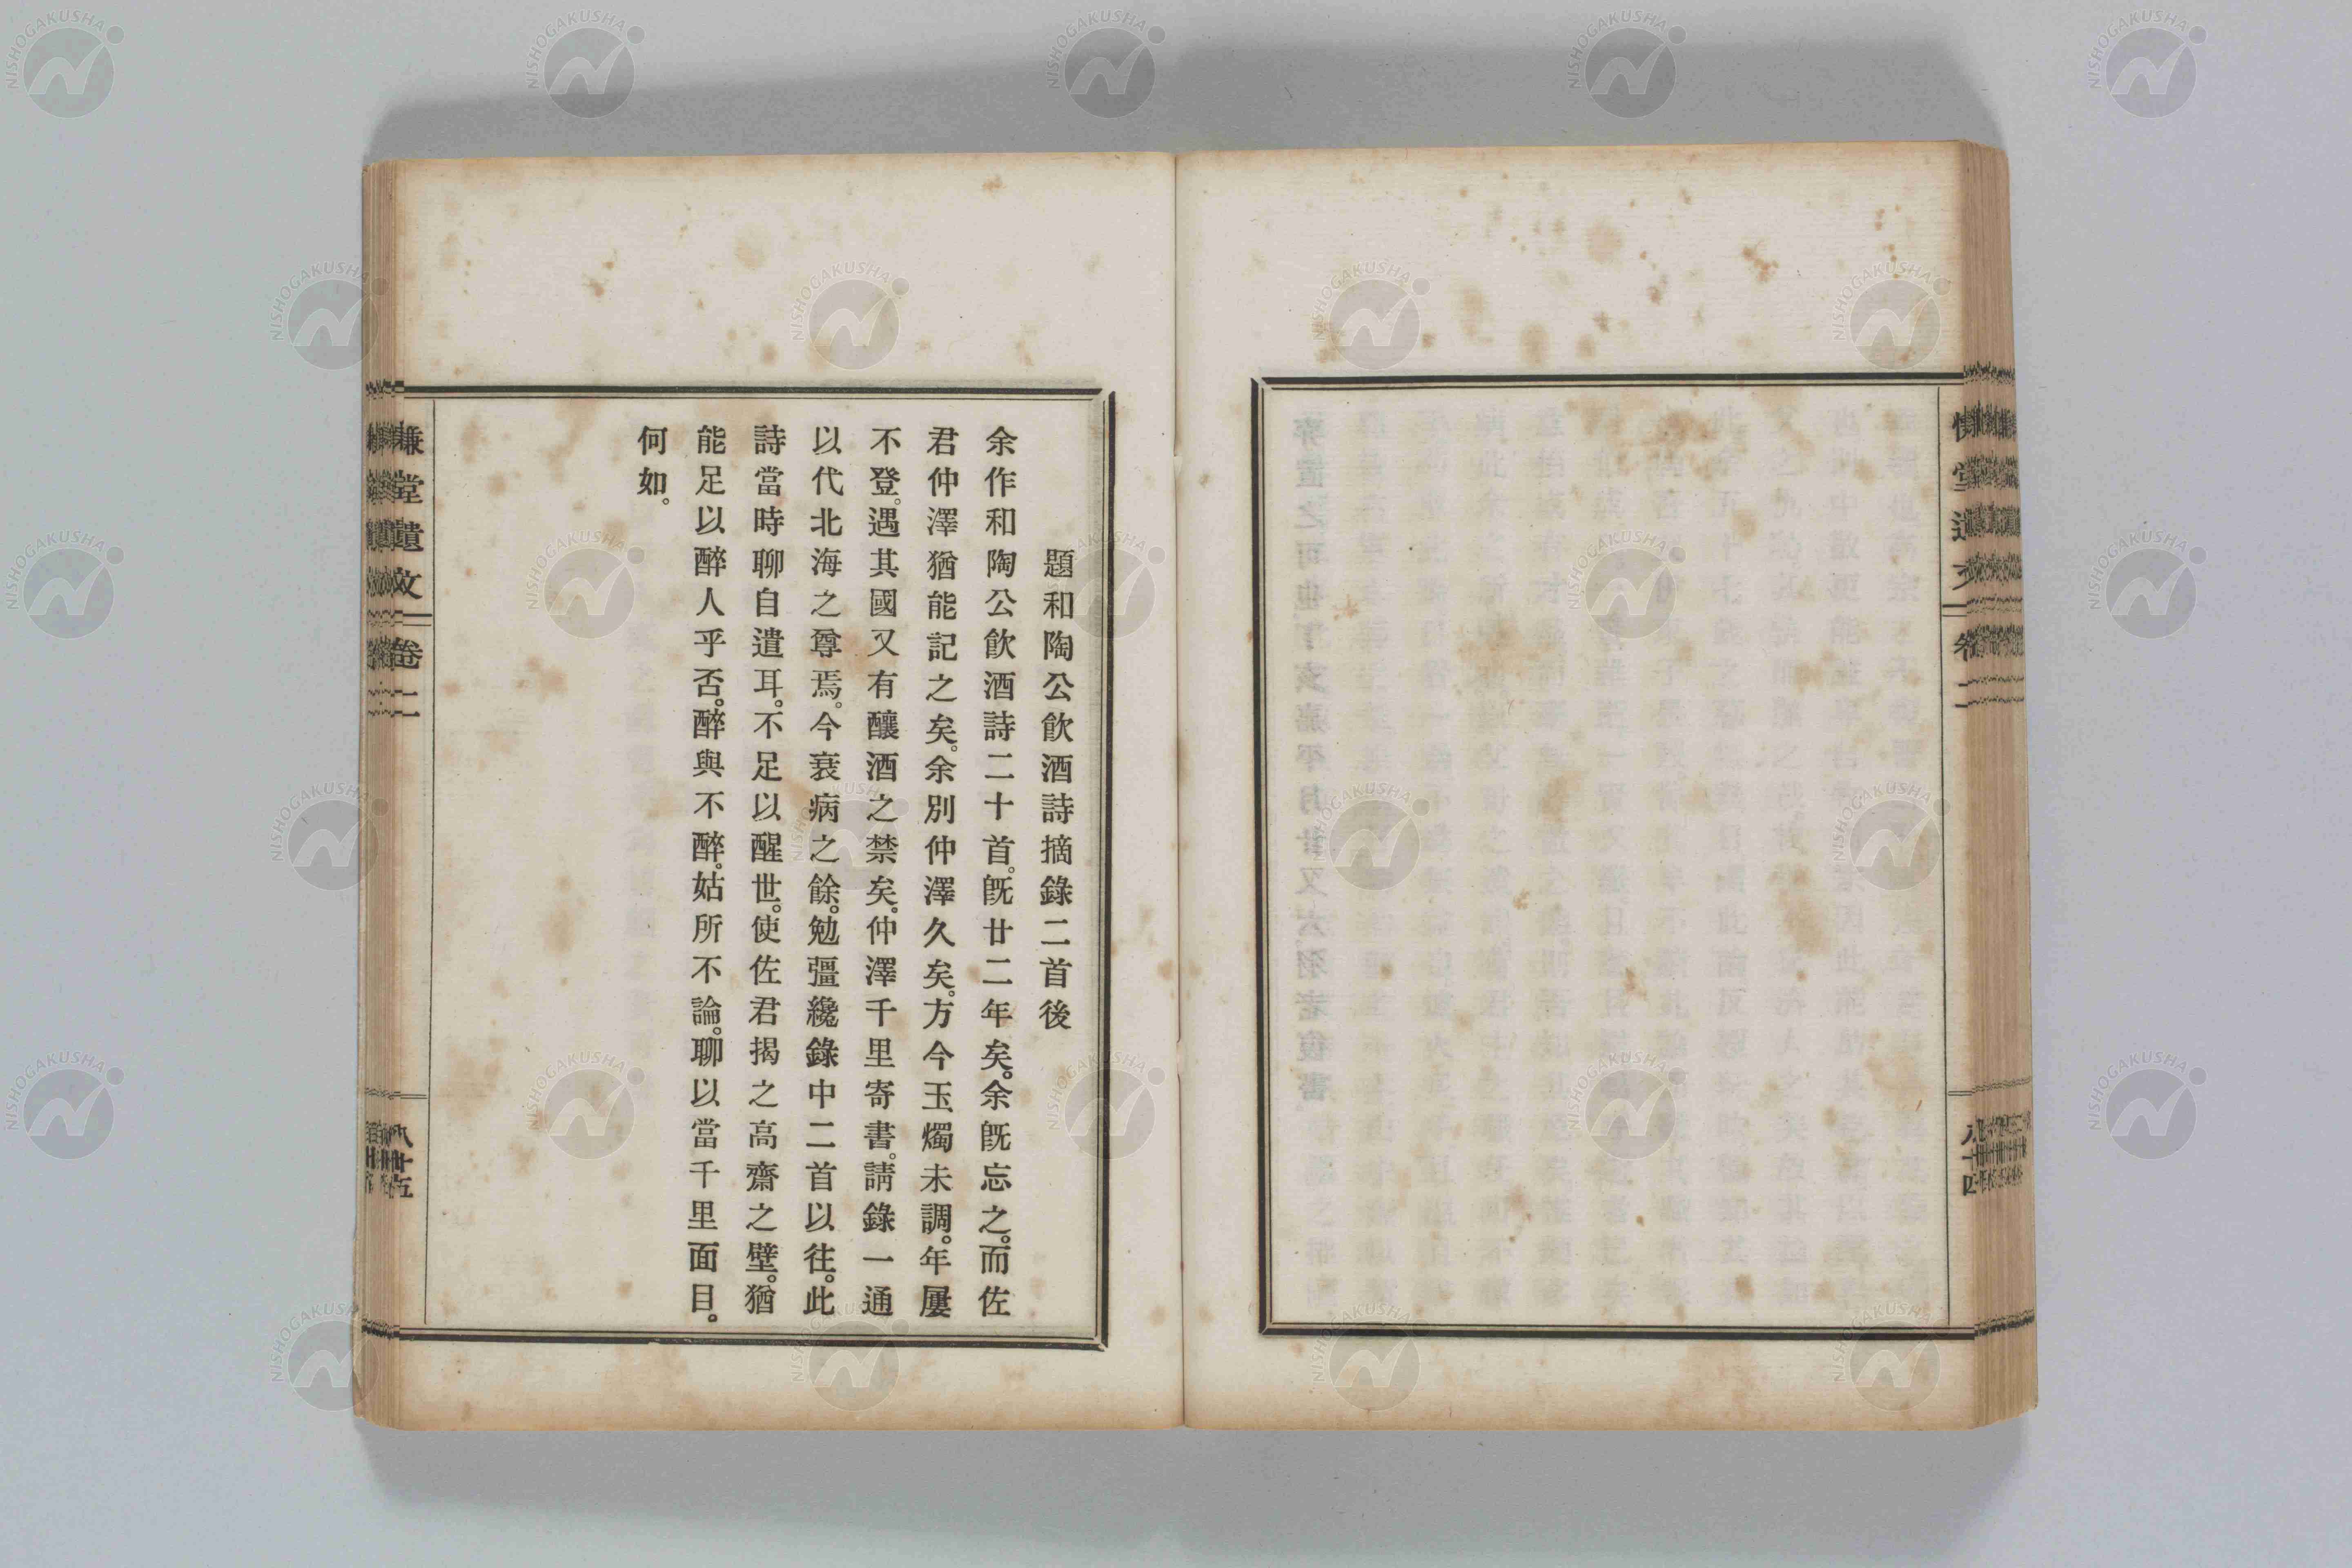 慊堂遺文
卷二
八十四
題和陶公飮酒詩摘錄二首後
余作和陶公飮酒詩二十首。旣廿二年矣。余旣忘之。而佐
君仲澤猶能記之矣。余別仲澤久矣。方今玉燭未調。年屢
不登。遇其國又有釀酒之禁矣。仲澤千里寄書。請錄一通
以代北海之尊焉。今衰病之餘。勉彊纔錄中二首以往。此
詩當時聊自遣耳。不足以醒世。使佐君揭之高齋之壁。猶
能足以醉人乎否。醉與不醉。姑所不論。聊以當千里面目。
何如。
慊堂遺文
卷二
八十五
NISHOGAKUSHA